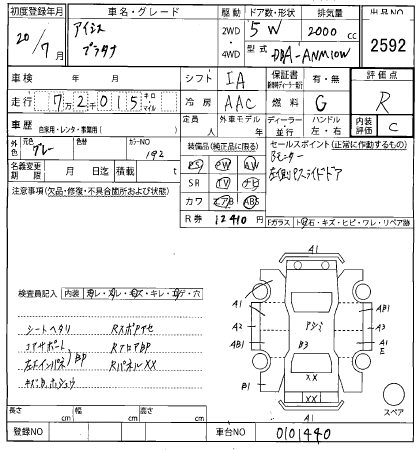 初度登録年月 車名・グレード 駆動 ドア数・形状 排気量 出品NO
20/7月 アイシス プラタナ 2WD・4WD 5 W 2000cc 2592
型式 DBA-ANM10W
車検 年 月 シフト IA 保証書 有・無 評価点
走行 7万2千015 キロ・マイル 冷房 AAC 燃料 G R
車歴 自家用・レンタ・事業用( ) 定員 人 外車モデル 年 ディーラー・並行 ハンドル 左・右 内装評価 C
外色 元色 グレー 色替 カラーNO 192 装備品(純正品に限る) セールスポイント(正常に作動するもの)
名義変更期限 月 日迄 積載 t PS PW Bモニター
SR TV ナビ 左側パワースライドドア
注意事項(欠品・修復・不具合箇所および状態) カワ エアB ABS
R券 12410円 Fガラス ト石・キズ・ヒビ・ワレ・リペア跡
A1
検査員記入 内装
シートヘタリ
コアサポート
左Fインパネ BP
RフロアBP
RパネルXX
A1 A2 AB1 B1
アジミ
B3
XX
AB1 A3 A1 E
XX
A1
スペア
長さ cm 幅 cm 高さ cm
登録NO 車台NO 0101440